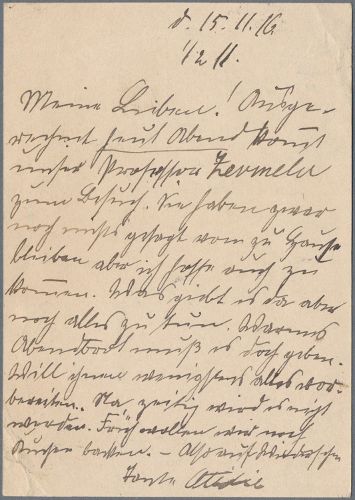 d. 15. 11. 16.
1/2 11.
Meine Lieben! Ausge-
rechnet heut Abend kommt
unser Professor Zermelo
zum Besuch. Sie haben zwar
noch nichts gesagt vom zu Hause
bleiben aber ich hoffe auch zu
kommen. Was giebt es da aber
noch alles zu tun. Warmes
Abendbrot muß es doch geben.
Will ihnen wenigstens alles vor-
bereiten. Na zeitig wird es nicht
werden. Früh wollen wir noch
Kuchen backen. – Also auf Wiedersehen
Tante